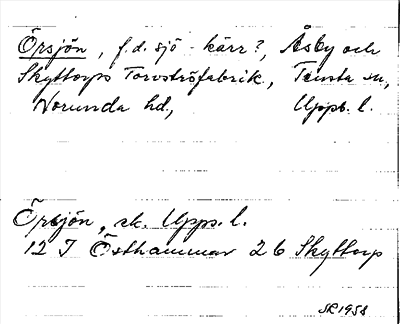 Örsjön, f.d. sjö - kärr?, Åsby och
Skyttorps Torvströfabrik, Tensta sn,
Norunda hd, Upps. l.
Örsjön, sk. Upps. l.
12 I Östhammar 2b Skyttorp
SR 1958